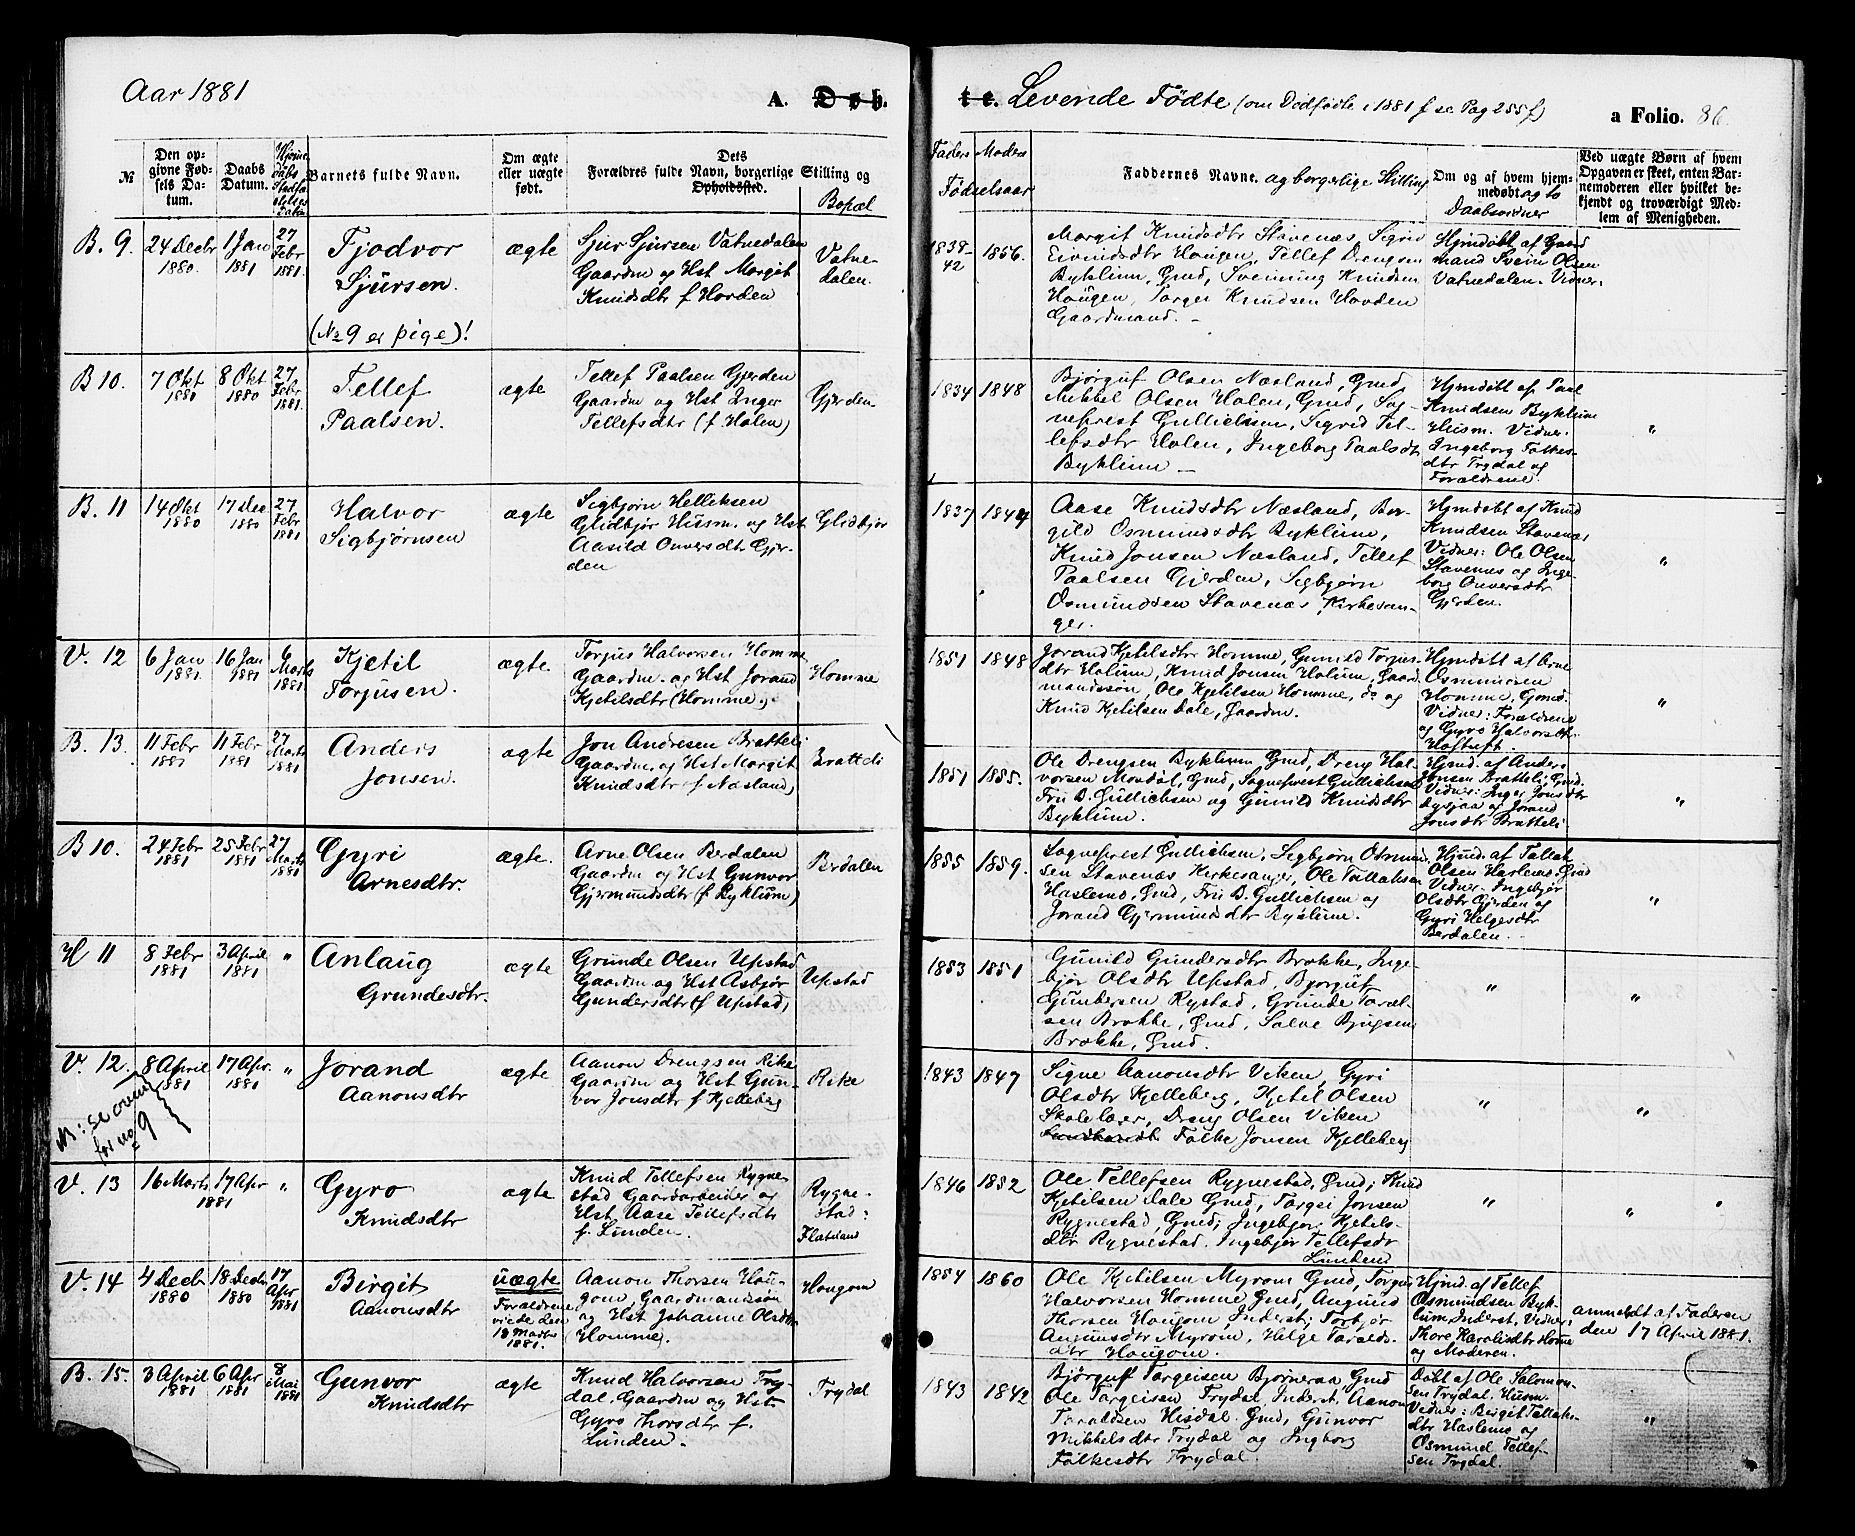 Aar 1881
A. Døb.
te. Levende Fødte (om Dødfødte i 1881 f se Pag 255f)
a Folio. 86.
№
Den op-
givne Fød-
sels Da-
tum.
Daabs
Datum.
Barnets fulde Navn.
Om ægte
eller uægte
født.
Dets
Forældres fulde Navn, borgerlige Stilling og
Opholdssted.
Bopæl
Faders
Moders
Fødselsaar
Faddernes Navne. og borgerlige Stilling
Om og af hvem hjem-
medøbt og to
Daabsvidner
Ved uægte Børn af hvem
Opgaven er skeet, enten Bar-
nemoderen eller hvilket be-
kjendt og troværdigt Med-
lem af Menigheden.
B. 9.
24 Decbr
1880.
1 Jan
1881
27
Febr
1881.
Tjodvor
Sjursen.
(No 9 er pige)!
ægte
Sjur Sjursen Vatnedalen
Gaardm og Hst Margit
Knudsdtr f Hovden
Vatne-
dalen.
1838-
42
1856.
Margit Knudsdtr Stavenæs, Sigrid
Eivindsdtr Haugen, Tellef Drengsen
Byklum, Gmd, Svenning Knudsen
Haugen, Torger Knudsen Hovden
Gaardmand. -
Hjmdøbt af Gaard
mand Svein Olsen
Vatnedalen. Vidner.
B 10.
7 Okt
1880
8 Okt
1880
27
Febr
1881.
Tellef
Paalsen.
ægte
Tellef Paalsen Gjerden
Gaardm og Hst Inger
Tellefsdtr (f Holen)
Gjerden
1834
1848
Bjørguf Olsen Næsland, Gmd,
Mikkel Olsen Holen, Gmd, Sog-
neprest Gullichsen, Sigrid Tel-
lefsdtr Holen, Ingeborg Paalsdtr
Byklum -
Hjmdøbt af Paal
Knudsen Byklum
Husm. Vidner.
Ingeborg Folkes-
dtr Trydal og
Forældrene.
"
B. 11
14 Okt
1880
17 Dec
1880
27
Febr
1881
Halvor
Sigbjørnsen
ægte
Sigbjørn Helleksen
Glidbjør Husm. og Hst
Aasild Onversdtr Gjer-
den
Glidbjør
1837
1844
Aase Knudsdtr Næsland, Ber-
gild Osmundsdtr Byklum,
Knud Jonsen Næsland, Tellef
Paalsen Gjerden, Sigbjørn
Osmundsen Stavenæs, Kirkesan-
ger.
Hjmdøbt af Knud
Knudsen Stavenæs
Vidner: Ole Olsen
Stavenes og Inge-
borg Onversdtr
Gjerden.
"
V. 12
6 Jan
1881.
16 Jan
1881
6
Marts
1881.
Kjetil
Torjusen.
ægte.
Torjus Halvorsen Homme
Gaardm. og Hst Jorand
Kjetilsdtr (Homme.
Homme
1851
1848
Jorand Kjetilsdtr Homme, Gunild Torjus-
dtr Holum, Knud Jonsen Holum, Gaard-
mandssøn, Ole Kjetilsen Homme, do og
Knud Kjetilsen Dale, Gaardm.
Hjmdøbt af Arne
Osmundsen
Homme, Gmd.
Vidner: Forældrene
og Gyro Halvorsdtr
Hoftuft.
"
B. 13.
11 Febr
1881
11 Febr
1881
27
Marts
1881
Anders
Jonsen.
ægte
Jon Andresen Bratteli
Gaardm. og Hst Margit
Knudsdtr f Næsland,
Bratteli
1851
1855.
Ole Drengsen Byklum Gmd, Dreng Hal-
vorsen Mosdøl, Gmd, Sogneprest Gullichsen
Fru B. Gullichsen og Gunild Knudsdtr
Byklum.
Hjmd. af Anders
Jonsen Bratteli Gmd.
Vidner: Inger Jonsdtr
og Jorand
Jonsdtr Bratteli
"
B 10.
24 Febr
1881
25 Febr
1881
27
Marts
1881
Gyri
Arnesdtr.
ægte.
Arne Olsen Berdalen
Gaardm og Hst Gunvor
Gjermundsdtr (f Byklum)
Berdalen
1855
1859.
Sogneprest Gullichsen, Sigbjørn Osmund-
sen Stavenæs Kirkesanger, Ole Tallaksen
Haslemo, Gmd, Fru B. Gullichsen og
Jorand Gjermundsdtr Byklum.
Hjmd. af Tallak
Olsen Haslemo Gmd
Vidner. Ingebjør
Olsdtr Gjerden og
Gyri Helgesdtr
Berdalen.
"
H 11
8 Febr
1881
3 April
1881
"
Anlaug
Grundesdtr.
ægte
Grunde Olsen Upstad
Gaardm og Hst Asbjør
Gundersdtr (f Upstad,
Upstad
1853
1851
Gunild Gundersdtr Brokke, Inge-
bjør Olsdtr Upstad, Bjørguf
Gunbersen Rystad, Grunde Taral-
sen Brokke, Gmd, Salve Bjugsen
Brokke, Gmd.
"
"
V. 12.
8 April
1881
17 Apr.
1881
"
Jorand
Aanonsdtr
ægte
Aanon Drengsen Rike
Gaardm og Hst Gun-
vor Jonsdtr f Kjelleberg
Rike
1843
1847
Signe Aanonsdtr Viken, Gyri
Olsdtr Kjelleberg, Kjetil Olsen
Skolelær, Dreng Olsen Viken
Folke Jonsen Kjelleberg
"
"
M: se ovenfor
for no 9
V. 13
16 Marts
17 Apr
1881
"
Gyro
Knudsdtr
ægte
Knud Tellefsen Rygne-
stad Gaardarbeider og
Hst. Aase Tellefsdtr
f. Lunden.
Rygne-
stad:
Flateland
1846
1852
Ole Tellefsen Rygnestad, Gmd; Knud
Kjetilsen Dale Gmd, Targei Jonsen
Rygnestad, Gmd; Ingebjør Kjetils-
dtr Rygnestad. Ingebjør Tellefsdr
Lunden
"
"
"
V. 14
4 Decbr
1880
18 Decbr
1880
17
Apr
1881
Birgit
Aanonsdtr
uægte
Forældrene
viede den
1881.
Aanon Thorsen Hou-
gom, Gaardmandssøn
og Hst Johanne Olsdtr
Homme,
Hougom
1854
1860
Ole Kjetilsen Myrom Gmd, Torgus
Halvorsen Homme Gmd, Angund
Thorsen Hougom Inderst; Torbjør
Angunsdtr Myrom, Helge Taralds-
dtr Hougom.
Hjmd. af Tellef
Osmundsen Byk-
lum, Inderst, Vidner:
Thore Haraldsdtr Homme
og Moderen.
anmeldt af Faderen
den 17 April 1881.
B. 15.
3 April
1881
6 Apr
1881
8
Mai
1881
Gunvor
Knudsdtr
ægte
Knud Halvorsen Try-
dal, Gaardm og Hst
Gyro Thorsdtr f.
Lunden.
Trydal
1843
1842
Bjørguf Targeisen Bjørneraa Gmd
Ole Targeisen Trydal, Inderst, Aanon
Taraldsen Hisdal Gmd, Gunvor
Mikkelsdtr Trydal og Ingborg
Folkesdtr Trydal.
Døbt af Ole Salomon-
sen Trydal, Husm.
Vidner: Birgit Tallaks-
dtr Haslemo og
Osmund Tellef-
sen Trydal.
"